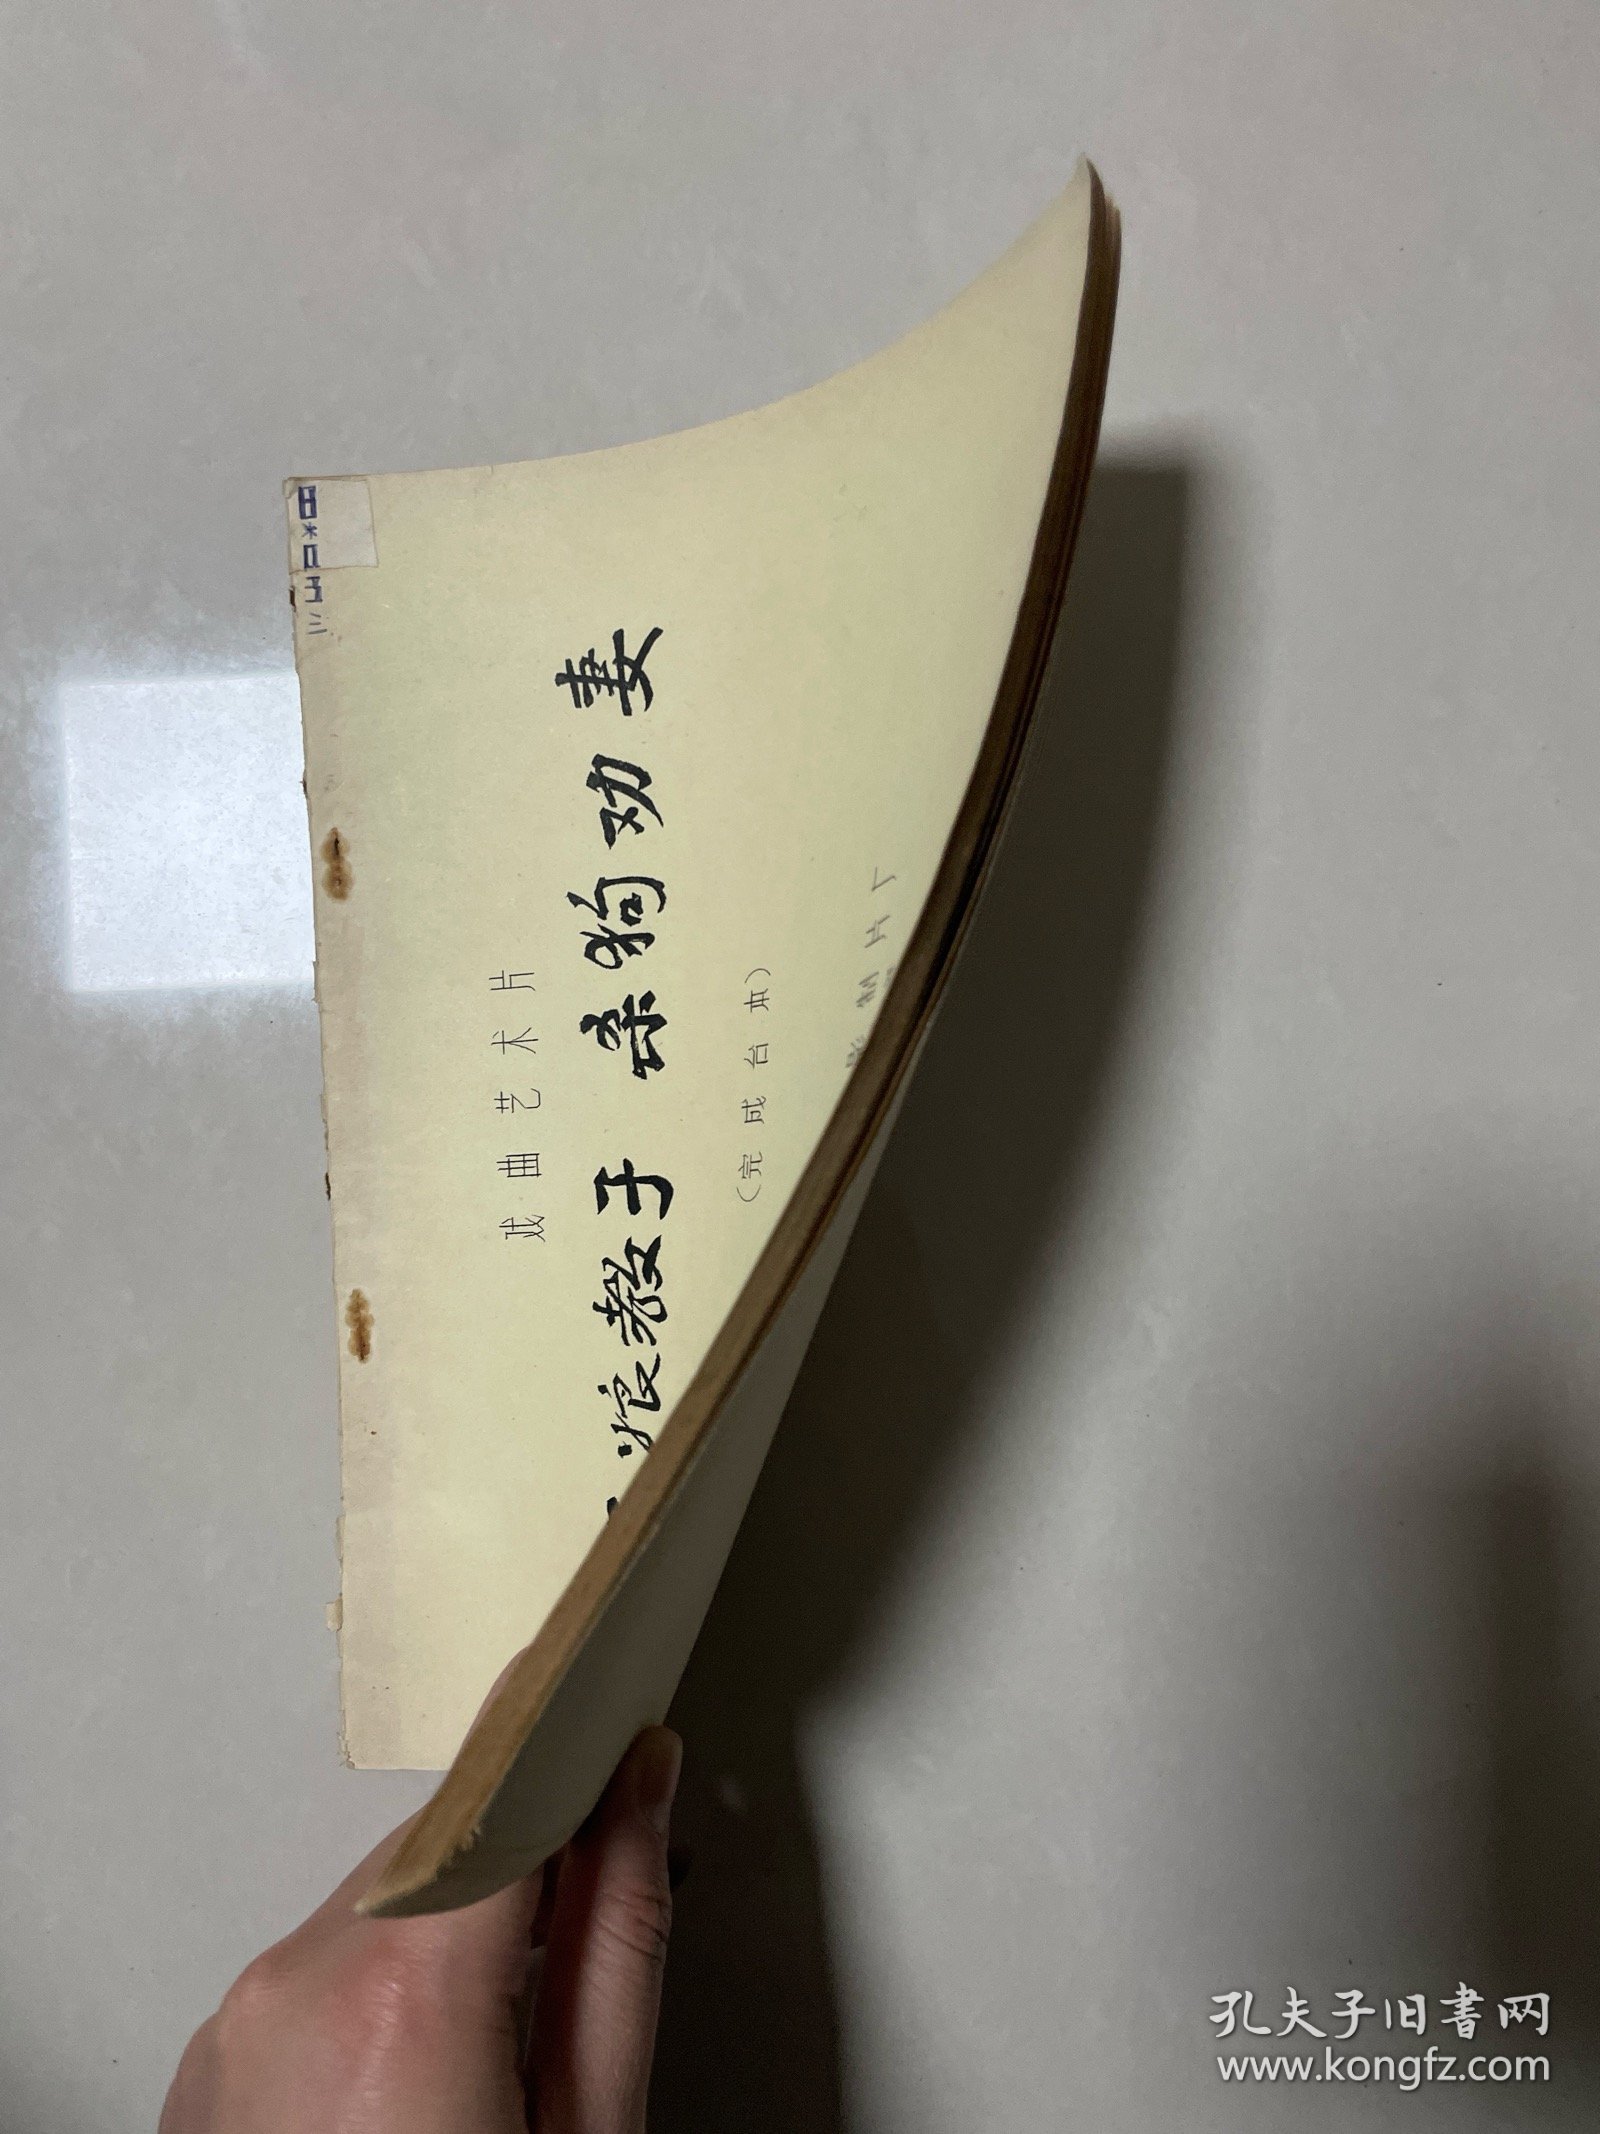 戏曲艺术片
娘教子 杀狗劝妻
(完成台本)
制片厂
孔夫子旧书网
www.kongfz.com